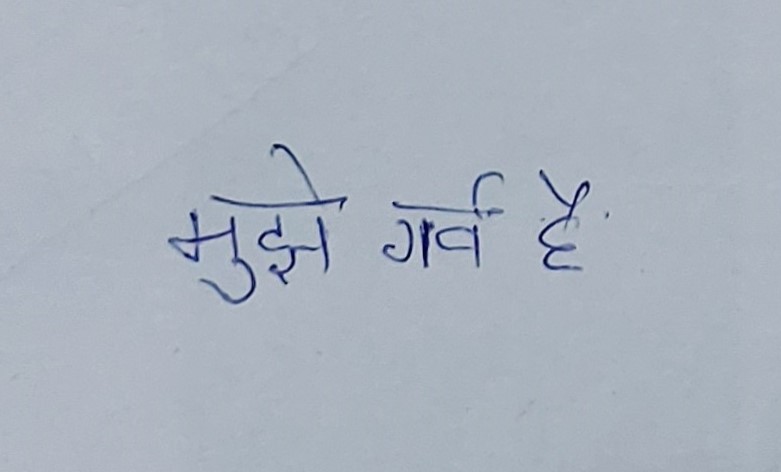 मुझे गर्व है.